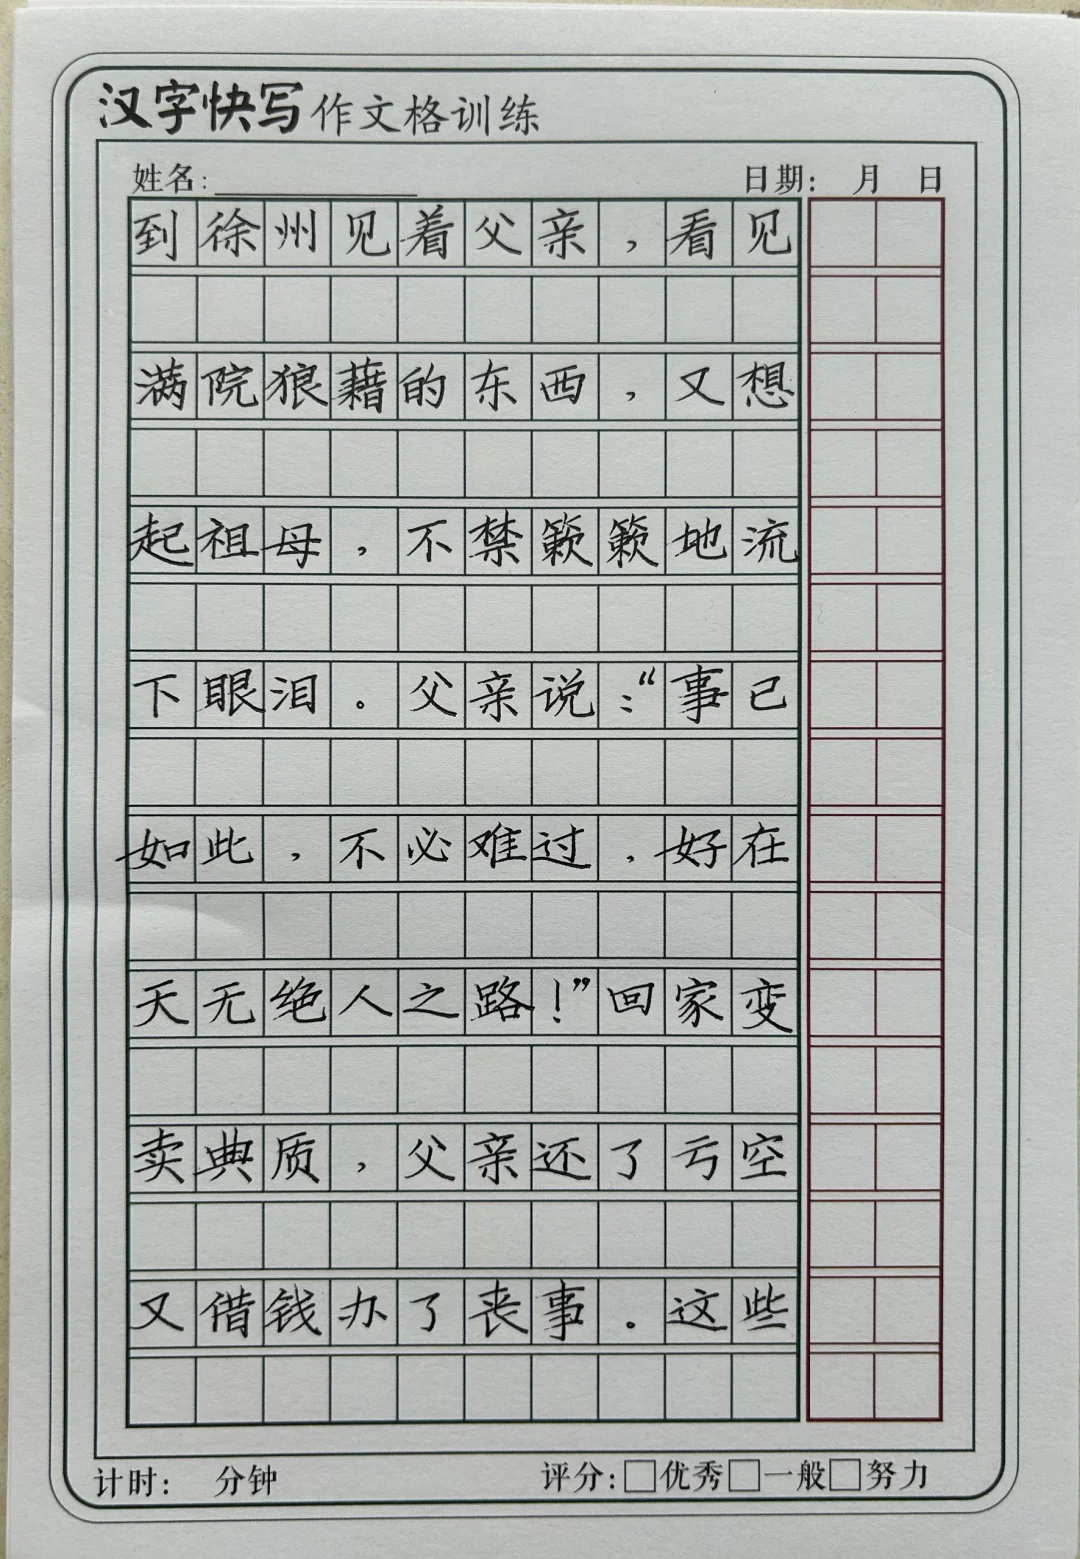 汉字快写作文格训练
姓名: 日期: 月 日
到徐州见着父亲，看见
满院狼藉的东西，又想
起祖母，不禁簌簌地流
下眼泪。父亲说：“事已
如此，不必难过，好在
天无绝人之路！”回家变
卖典质，父亲还了亏空
又借钱办了丧事。这些
计时: 分钟 评分:□优秀□一般□努力